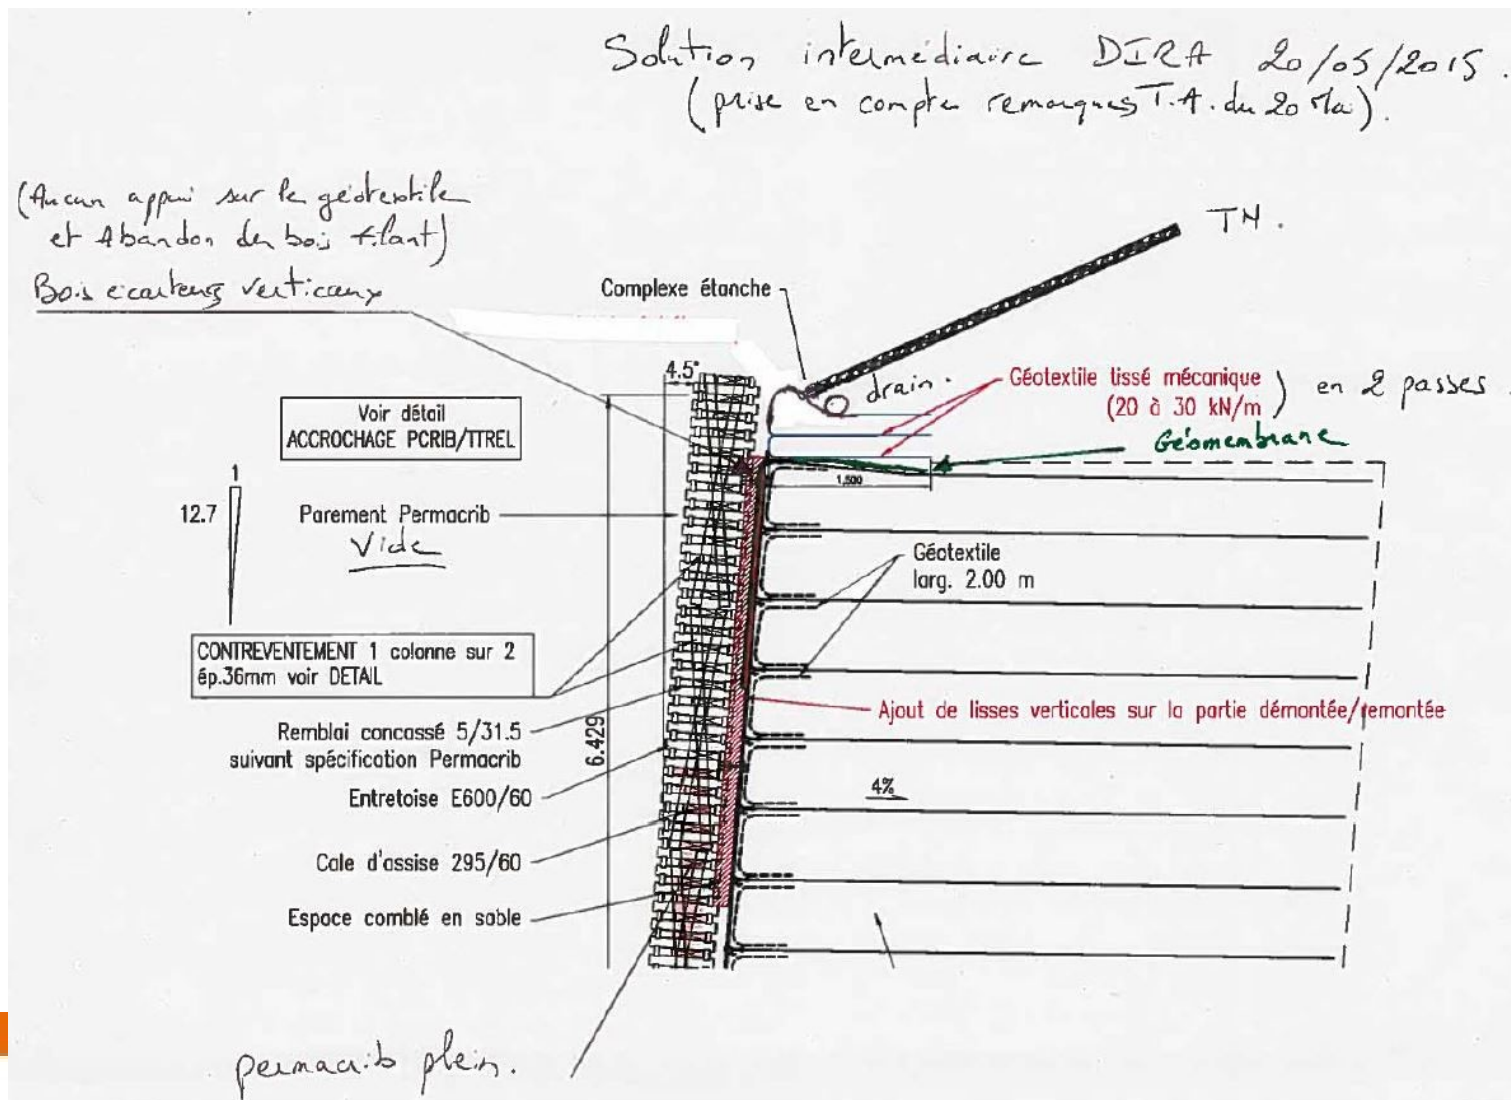 Solution intermédiaire DIRA 20/05/2015.
(prise en compte remarques T.A. du 20 Mai).
(Aucun appui sur le géotextile
et Abandon du bois filant)
Bois écarteurs verticaux
TN.
Complexe étanche
4.5°
drain.
Géotextile tissé mécanique
(20 à 30 kN/m) en 2 passes
Géomembrane
Voir détail
ACCROCHAGE PCRIB/TTREL
1,500
1
12.7
Parement Permacrib
Vide
Géotextile
larg. 2.00 m
CONTREVENTEMENT 1 colonne sur 2
ép.36mm voir DETAIL
Ajout de lisses verticales sur la partie démontée/remontée
Remblai concassé 5/31.5
suivant spécification Permacrib
6.429
Entretoise E600/60
4%
Cale d'assise 295/60
Espace comblé en sable
permacrib plein.